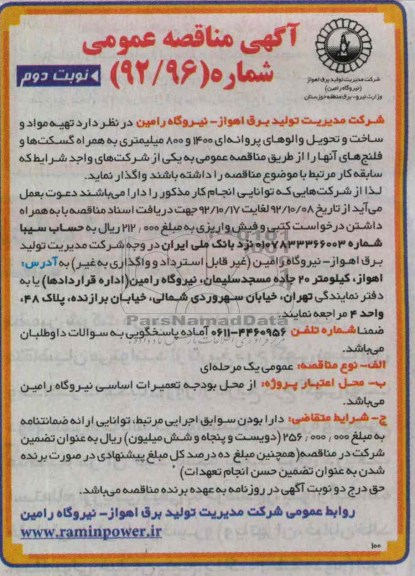 آگهی مناقصه عمومی
شماره (۹۲/۹۶)
نوبت دوم
شرکت مدیریت تولید برق اهواز
(نیروگاه رامین)
وزارت نیرو - برق منطقه خوزستان
شرکت مدیریت تولید برق اهواز- نیروگاه رامین در نظر دارد تهیه مواد و
ساخت و تحویل والوهای پروانه‌ای ۱۴۰۰ و ۸۰۰ میلیمتری به همراه گسکت‌ها و
فلنج‌های آنها را از طریق مناقصه عمومی به یکی از شرکت‌های واجد شرایط که
سابقه کار مرتبط با موضوع مناقصه را داشته باشند واگذار نماید.
لذا از شرکت‌هایی که توانایی انجام کار مذکور را دارا می‌باشند دعوت بعمل
می‌آید از تاریخ ۹۲/۱۰/۰۸ لغایت ۹۲/۱۰/۱۷ جهت دریافت اسناد مناقصه با به همراه
داشتن درخواست کتبی و فیش واریزی به مبلغ ۲۱۲/۰۰۰ ریال به حساب سیبا
شماره ۰۱۰۷۸۳۳۳۶۶۰۰۳ نزد بانک ملی ایران در وجه شرکت مدیریت تولید
برق اهواز- نیروگاه رامین (غیر قابل استرداد و واگذاری به غیر) به آدرس:
اهواز، کیلومتر ۲۰ جاده مسجدسلیمان، نیروگاه رامین (اداره قراردادها) یا به
دفتر نمایندگی تهران، خیابان سهروردی شمالی، خیابان برازنده، پلاک ۴۸،
واحد ۴ مراجعه نمایند.
ParsNamadData
ضمنا شماره تلفن ۴۴۶۰۹۵۶-۰۶۱۱ آماده پاسخگویی به سوالات داوطلبان
می‌باشد.
الف- نوع مناقصه: عمومی یک مرحله‌ای
ب- محل اعتبار پروژه: از محل بودجه تعمیرات اساسی نیروگاه رامین
می‌باشد.
ج- شرایط متقاضی: دارا بودن سوابق اجرایی مرتبط، توانایی ارائه ضمانتنامه
به مبلغ ۲۵۶/۰۰۰/۰۰۰ (دویست و پنجاه و شش میلیون) ریال به عنوان تضمین
شرکت در مناقصه (همچنین مبلغ ده درصد کل مبلغ پیشنهادی در صورت برنده
شدن به عنوان تضمین حسن انجام تعهدات)
حق درج دو نوبت آگهی در روزنامه به عهده برنده مناقصه می‌باشد.
روابط عمومی شرکت مدیریت تولید برق اهواز- نیروگاه رامین
www.raminpower.ir